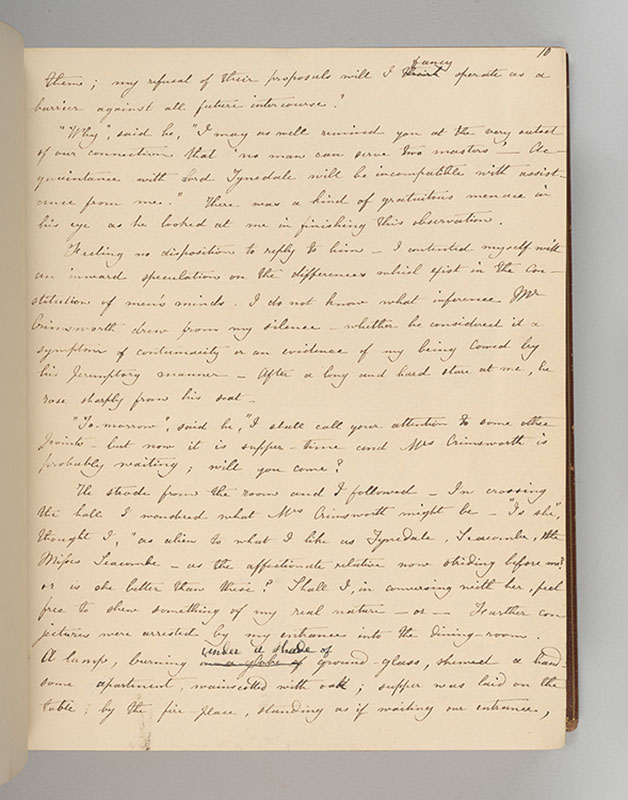 10
them; my refusal of their proposals will I fancy think operate as a
barrier against all future intercourse."
"Why", said he, "I may as well remind you at the very outset
of our connection that 'no man can serve two masters' – Ac-
quaintance with Lord Tynedale will be incompatible with assist-
ance from me." There was a kind of gratuitous menace in
his eye as he looked at me in finishing this observation.
Feeling no disposition to reply to him – I contented myself with
an inward speculation on the differences which exist in the con-
stitution of men's minds. I do not know what inference Mr
Crimsworth drew from my silence – whether he considered it a
symptom of contumacity or an evidence of my being cowed by
his peremptory manner – After a long and hard stare at me, he
rose sharply from his seat –
"To-morrow", said he, "I shall call your attention to some other
points – but now it is supper-time and Mrs Crimsworth is
probably waiting; will you come?
He strode from the room and I followed – In crossing
the hall I wondered what Mrs Crimsworth might be – "Is she",
thought I, "as alien to what I like as Tynedale, Seacombe, the
Misses Seacombe – as the affectionate relative now striding before me?
or is she better than these? Shall I, in conversing with her, feel
free to shew something of my real nature – or – Further con-
jectures were arrested by my entrance into the dining-room.
under a shade of
A lamp, burning in a globe of ground-glass, shewed a hand-
some apartment, wainscotted with oak; supper was laid on the
table; by the fire-place, standing as if waiting our entrance,